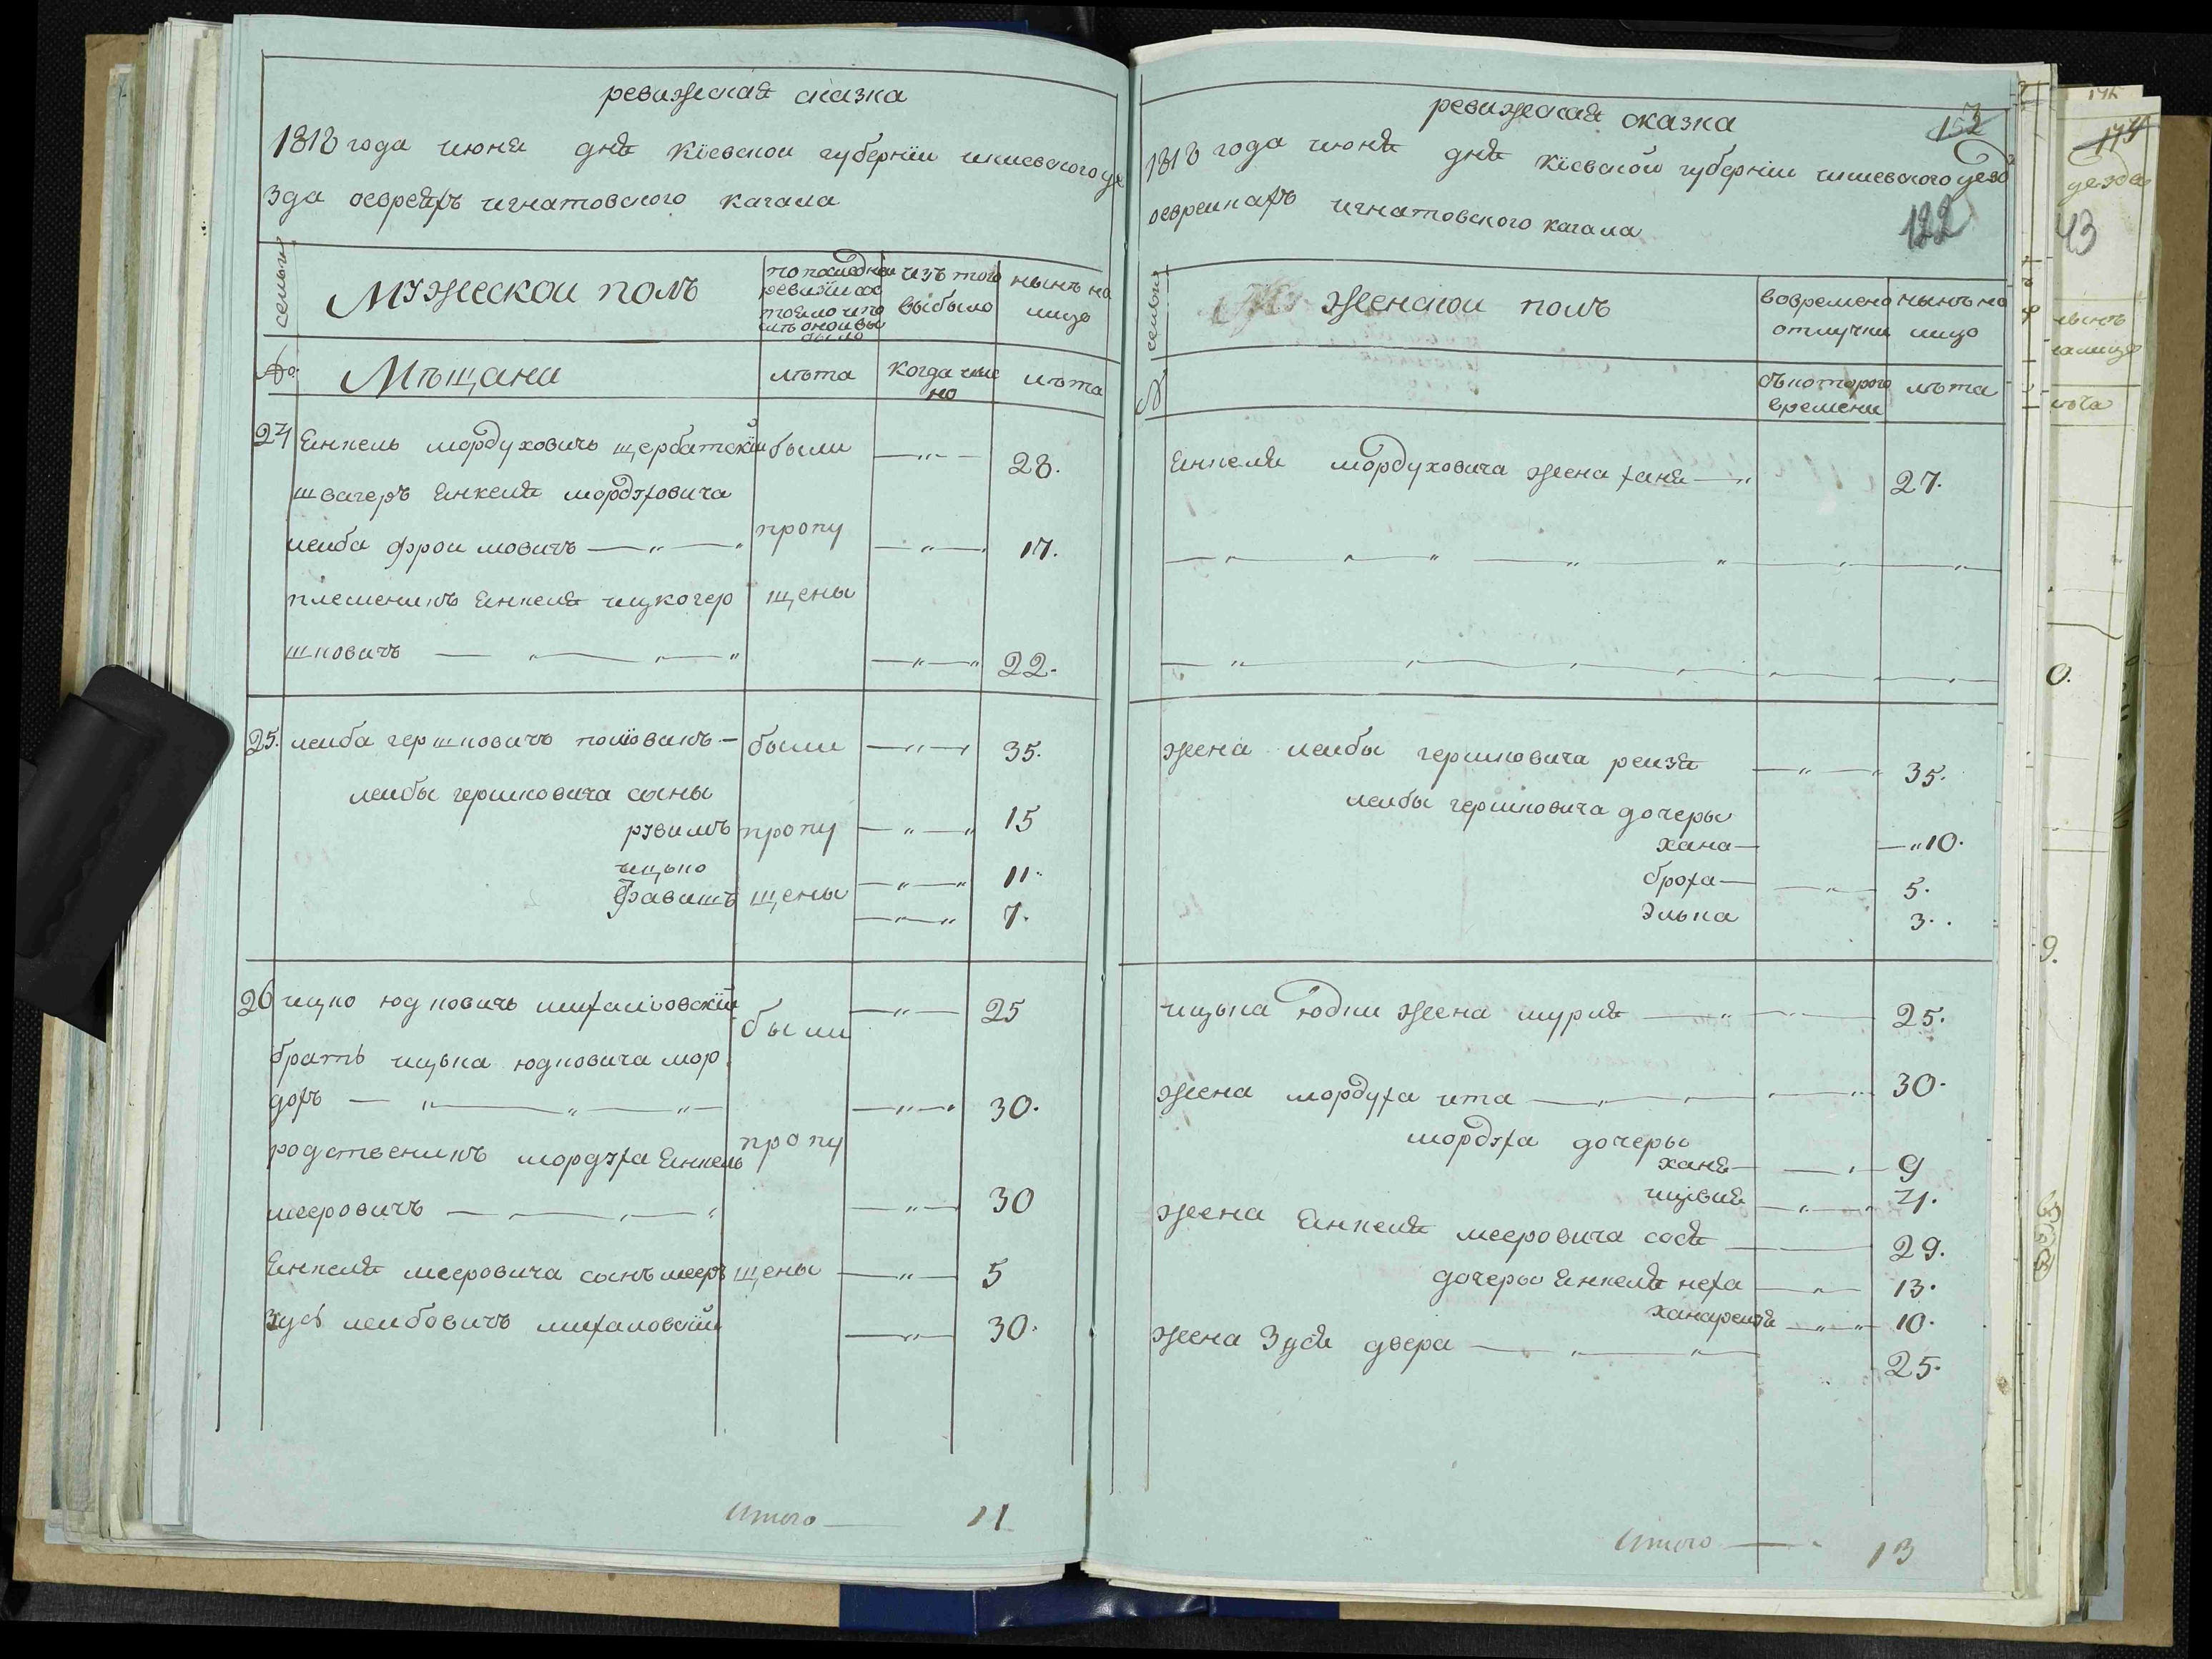 ревижская сказка
1818 года июня дня кіевской губерніи кіевского уе
зда оевреяхъ игнатовского кагала
семьи
Мужеской полъ
по последней ревизіи со стояло и по слѣ оной вы было
изъ того выбыло
нынѣ на лицо
№
Мѣщани
лѣта
когда имен но
лѣта
24 Енкель мордуховичь щербатскій были —„— 28.
швагеръ Енкеля мордуховича
лейба фроимовичъ —„— пропу —„— 17.
племеникъ Енкеля ицко гер щены
шковичъ —„—„—„ —„—„ 22.
25. лейба гершковичъ поліовикъ — были —„— 35.
лейбы гершковича сыны
рувимъ пропу —„— 15
ицько —„—„ 11.
Фавишъ щены —„—„ 7.
26 ицко юдковичь михаловскій были —„— 25
братъ ицька юдковича мор
дохъ —„—„—„— —„—„ 30.
родственикъ мордуха Енкель пропу
мееровичъ —„—„—„ —„— 30
Енкеля мееровича сынъ мееръ щены —„— 5
Зусь лейбовичъ михаловскій —„— 30.
Итого — 11
ревижская сказка
152
1818 года июня дня кіевской губерніи кіевского уезд
оевреикахъ игнатовского кагала
122
семьи
женской полъ
вовремено отлучки
нынѣ на лицо
№
съ которого времени
лѣта
Енкеля мордуховича жена ханя —„ 27.
—„—„—„—„—„—„—„
—„—„—„—„—„—„
жена лейбы гершковича рейзя —„—„ 35.
лейбы гершковича дочеры
хана — —„ 10.
броха — —„— 5.
Элька 3.
ицька юдки жена мурля —„—„— 25.
жена мордуха ита —„—„—„ 30.
мордуха дочеры
ханя — —„— 9
цивия —„—„ 4.
жена Енкеля мееровича сося — 29.
дочеры Енкеля неха —„— 13.
ханарейзя —„—„ 10.
жена Зуся двера —„—„— 25.
Итого — 13
174
уезда
43
нынѣ
налице
лѣта
0.
9.